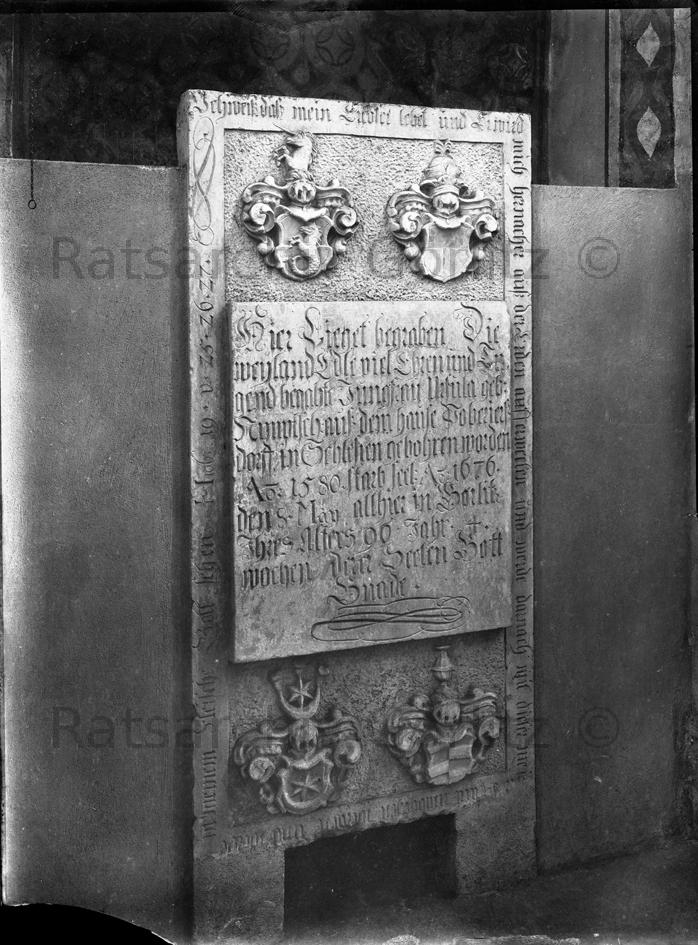 Ich weiß daß mein Erlöser lebet und Er wird
mich hernacher auß der Erden aufferwecken und werde darnach mit dieser
in meinem Fleisch Gott sehen Hiob 19. v. 25. 26. 27.
Hier Lieget begraben Die
weyland Edle viel Ehren und Tu
gend begabte Jungfrau Ursula geb:
auß dem hause
dorff in Schlesien gebohren worden
Ao: 1580. starb seel: Ao: 1676.
den 8. May allhier in Görlitz
Ihres Alters 96 Jahr 4.
wochen derer Seelen Gott
Gnade.
Ratsarchiv Görlitz ©
Ratsarchiv Görlitz ©